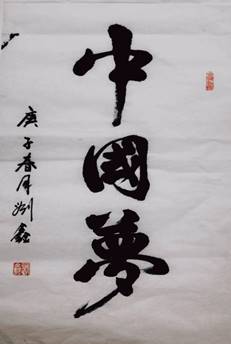 中國夢
庚子春月洲鑫